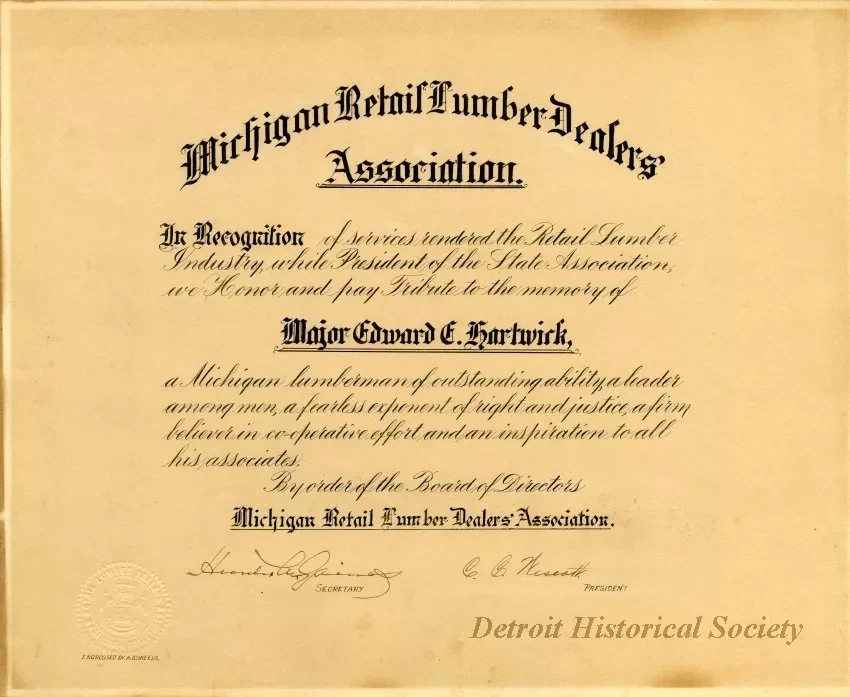 Michigan Retail Lumber Dealers'
Association.
In Recognition of services rendered the Retail Lumber
Industry, while President of the State Association,
we Honor and pay Tribute to the memory of
Major Edward E. Hartwick,
a Michigan lumberman of outstanding ability, a leader
among men, a fearless exponent of right and justice, a firm
believer in co-operative effort and an inspiration to all
his associates.
By order of the Board of Directors
Michigan Retail Lumber Dealers' Association.
C. C. Wescott
SECRETARY
PRESIDENT
ENGROSSED BY A.B.SKEELS.
Detroit Historical Society